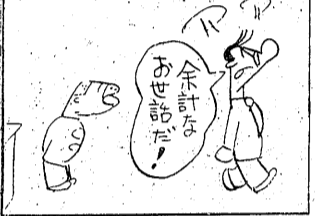 余計な
お世話だ!